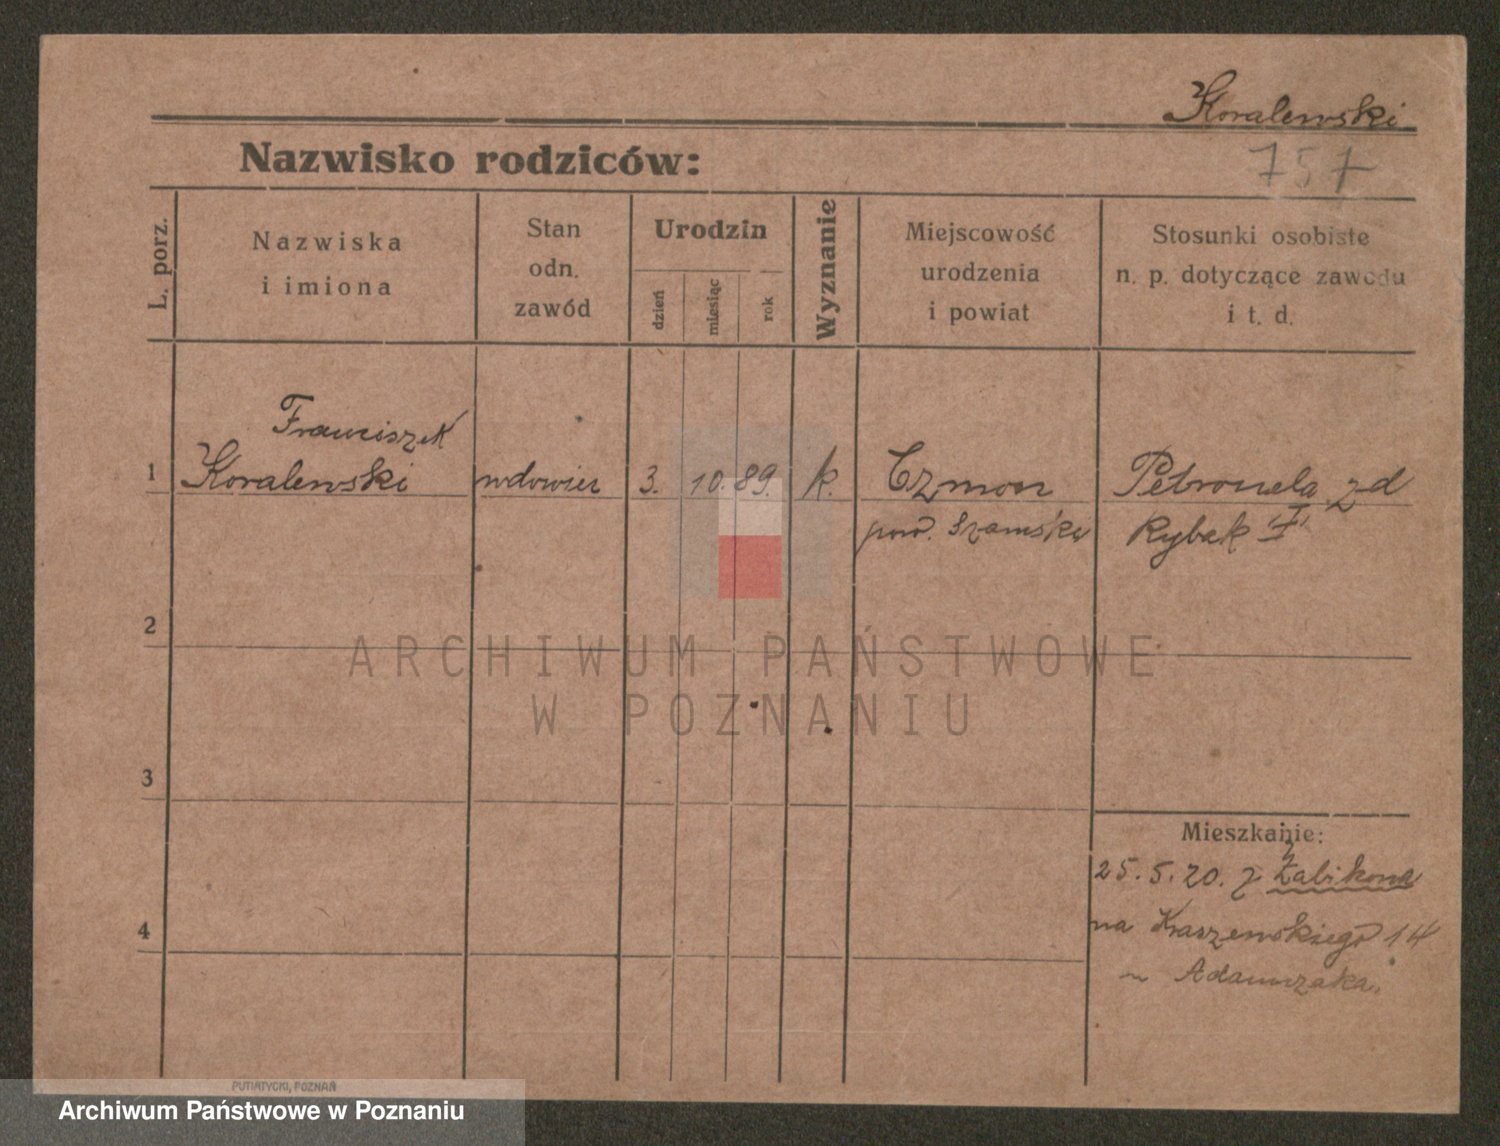 Koralewski
Nazwisko rodziców:
757
L. porz.
Nazwiska
i imiona
Stan
odn.
zawód
Urodzin
dzień
miesiąc
rok
Wyznanie
Miejscowość
urodzenia
i powiat
Stosunki osobiste
n. p. dotyczące zawodu
i t. d.
Franciszek
1 Koralewski wdowiec 3. 10. 89. k. Czmoń Petronela zd
pow. Rybak
2
ARCHIWUM PAŃSTWOWE
W POZNANIU
3
Mieszkanie:
25. 5. 20. z Żabikowa
4 na Kraszewskiego 14
Adamczaka.
PUTIATYCKI, POZNAŃ
Archiwum Państwowe w Poznaniu